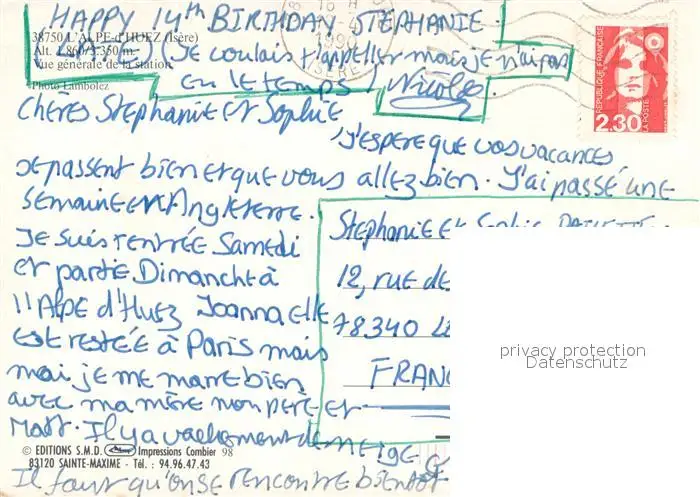 HAPPY 14th BIRTHDAY STEPHANIE.
38750 L'ALPE-d'HUEZ (Isère)
Alt. 1.860/3.350 m.
Vue générale de la station
Photo Lambolez
(Je voulais t'appeller mais je n'ai pas
eu le temps) Nicolas.
1990
ISERE
REPUBLIQUE FRANÇAISE
2.30
LA POSTE
Chères Stephanie et Sophie
J'espere que vos vacances
se passent bien et que vous allez bien. J'ai passé une
semaine en Angleterre.
Je suis rentrée Samedi
et partie Dimanche à
l'Alpe d'Huez Joanna elle
est restée à Paris mais
moi je me marre bien
avec ma mère mon père et
Matt. Il y a vachement de neige
Il faut qu'on se rencontre bientot
Stephanie et Sophie
12, rue de
78340
FRAN
privacy protection
Datenschutz
© EDITIONS S.M.D. Impressions Combier 98
83120 SAINTE-MAXIME - Tél. : 94.96.47.43